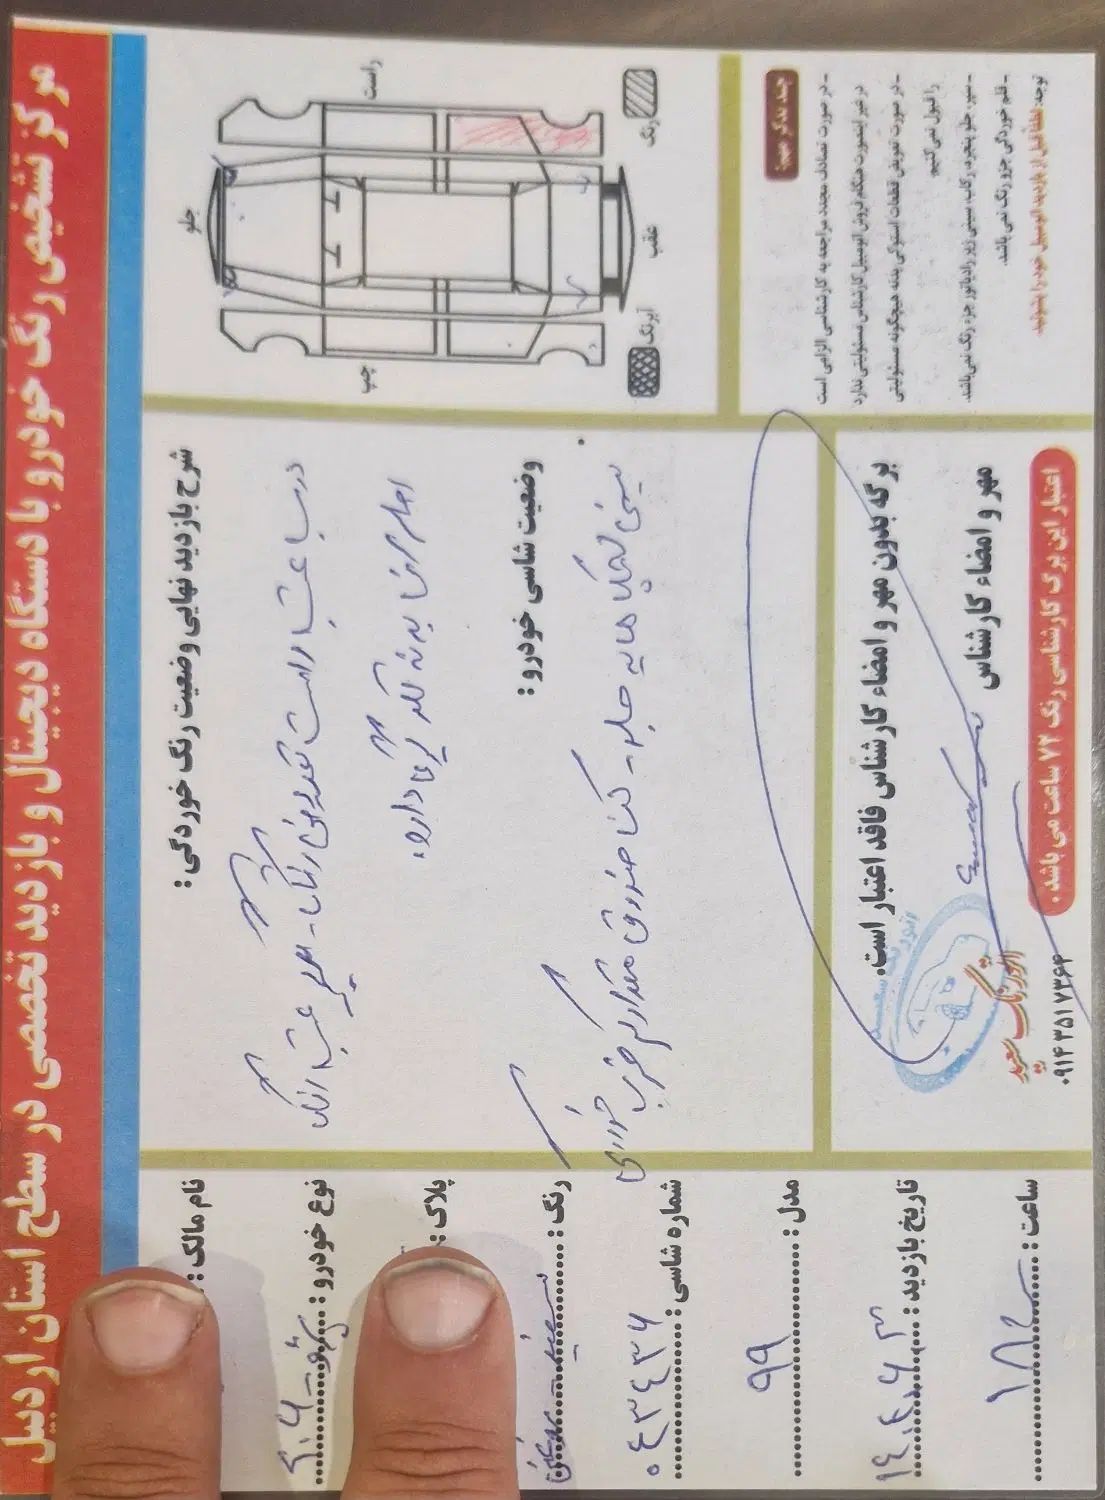 مرکز تشخیص رنگ خودرو با دستگاه دیجیتال و بازدید تخصصی در سطح استان اردبیل
راست
جلو
عقب
چپ
رنگ
آبرنگ
چند تذکر مهم:
- در صورت تصادف مجدد مراجعه به کارشناسی الزامی است
در غیر اینصورت هنگام فروش اتومبیل کارشناس مسئولیتی ندارد
- در صورت تعویض قطعات استوکی بدنه هیچگونه مسئولیتی
را قبول نمی کنیم.
- سپر، جلو پنجره، رکاب، سینی زیر رادیاتور جزء رنگ نمی باشد.
- قلم خوردگی جزو رنگ نمی باشد.
توجه: لطفا قبل از بازدید اتومبیل خود را بشوئید.
شرح بازدید نهایی وضعیت رنگ خوردگی:
درب عقب راست تعویض رنگ - گلگیر عقب رنگ
دارد.
وضعیت شاسی خودرو:
سینی جلو - کف صندوق مقدار کم ضرب خوردگی
برگه بدون مهر و امضاء کارشناس فاقد اعتبار است.
مهر و امضاء کارشناس
اعتبار این برگ کارشناسی رنگ ۷۲ ساعت می باشد.
اتورنگ سعید
۰۹۱۴۳۵۱۷۳۶۴
نام مالک:
نوع خودرو: پژو ۲۰۶
پلاک:
رنگ: سفید روغنی
شماره شاسی: ۰۴۳۴۳۶
مدل: ۹۹
تاریخ بازدید:
ساعت: ۱۸